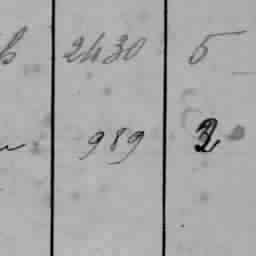 2430 5
989 2